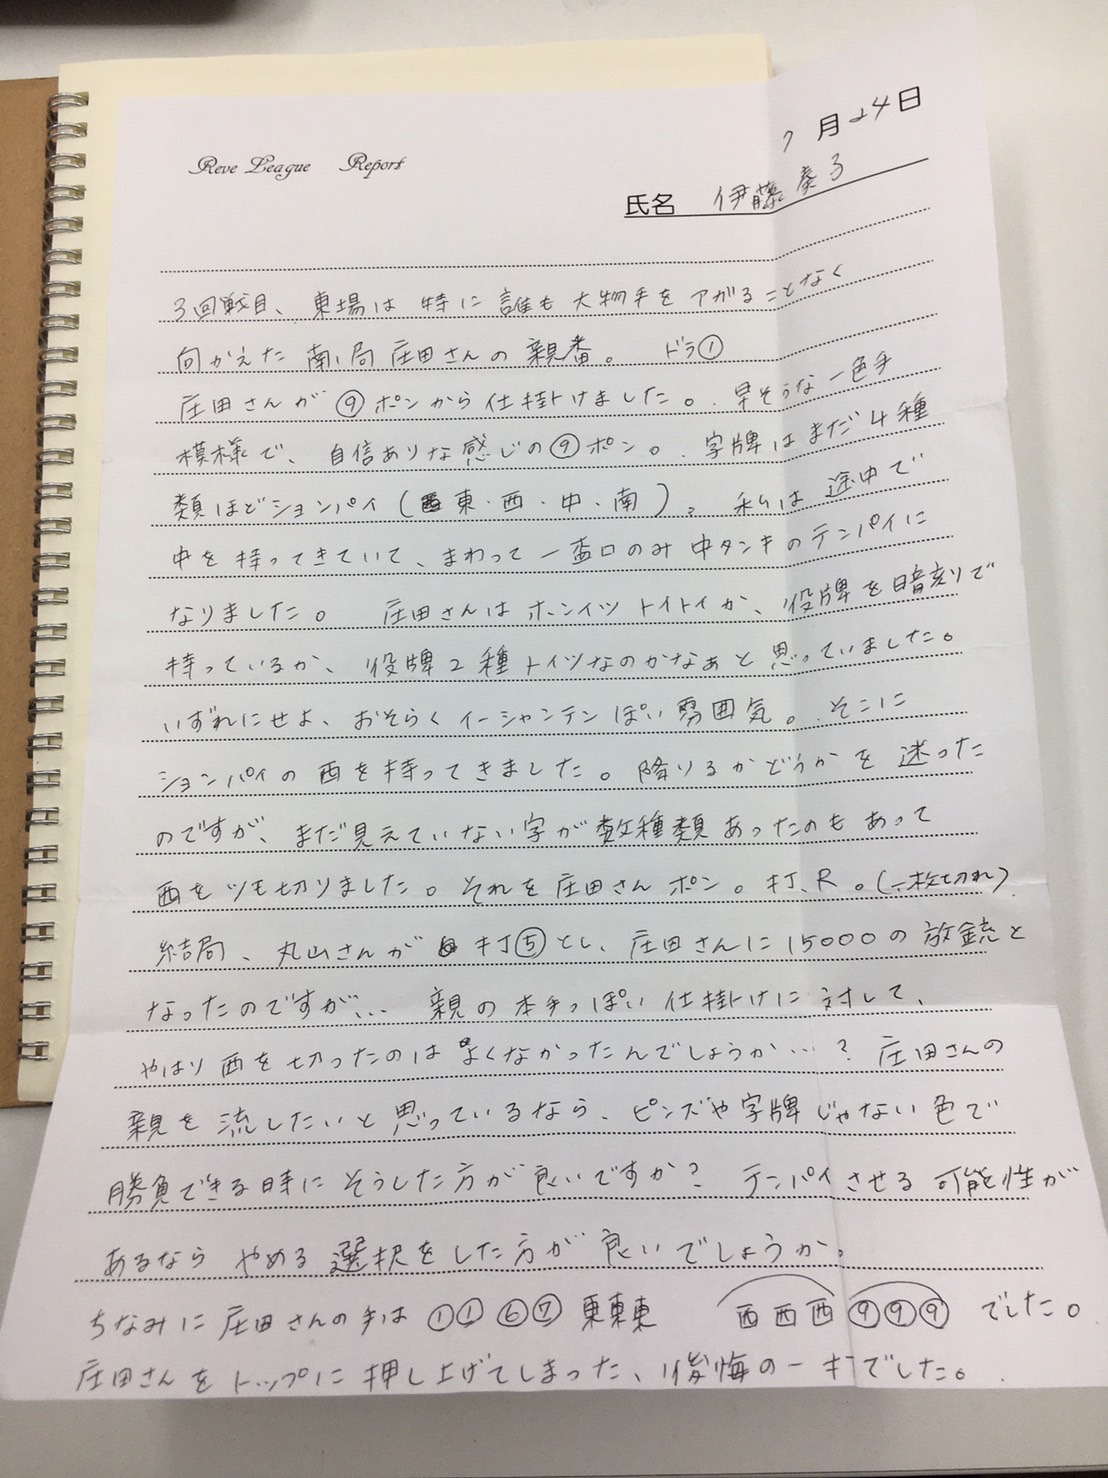 7月24日
Reve League Report
氏名 伊藤奏子
3回戦目、東場は特に誰も大物手をアがることなく
向かえた南1局庄田さんの親番。 ドラ①
庄田さんが⑨ポンから仕掛けました。早そうな一色手
模様で、自信ありな感じの⑨ポン。字牌はまだ4種
類ほどションパイ(東・西・中・南)。私は途中で
中を持ってきていて、まわって一盃口のみ中タンキのテンパイに
なりました。 庄田さんはホンイツトイトイか、役牌を暗刻で
持っているか、役牌2種トイツなのかなぁと思っていました。
いずれにせよ、おそらくイーシャンテンぽい雰囲気。そこに
ションパイの西を持ってきました。降りるかどうかを迷った
のですが、まだ見えていない字が数種類あったのもあって
西をツモ切りました。それを庄田さんポン。打、R。(一枚切れ)
結局、丸山さんが打⑤とし、庄田さんに15000の放銃と
なったのですが… 親の本手っぽい仕掛けに対して、
やはり西を切ったのはよくなかったんでしょうか…? 庄田さんの
親を流したいと思っているなら、ピンズや字牌じゃない色で
勝負できる時にそうした方が良いですか? テンパイさせる可能性が
あるならやめる選択をした方が良いでしょうか。
ちなみに庄田さんの手は①①⑥⑦東東東 西西西⑨⑨⑨でした。
庄田さんをトップに押し上げてしまった、後悔の一打でした。